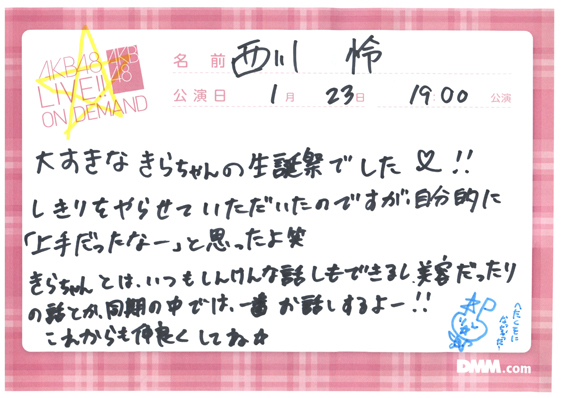 AKB48
LIVE!!
ON DEMAND
AKB
48
名前 西川 怜
公演日 1月 23日 19:00 公演
大すきな きらちゃんの生誕祭でした♡!!
しきりをやらせていただいたのですが、自分的に
「上手だったなー」と思ったよ笑
きらちゃんとは、いつもしんけんな話しもできるし、美容だったり
の話とか、同期の中では、一番お話しするよー!!
これからも仲良くしてね☆
DMM.com